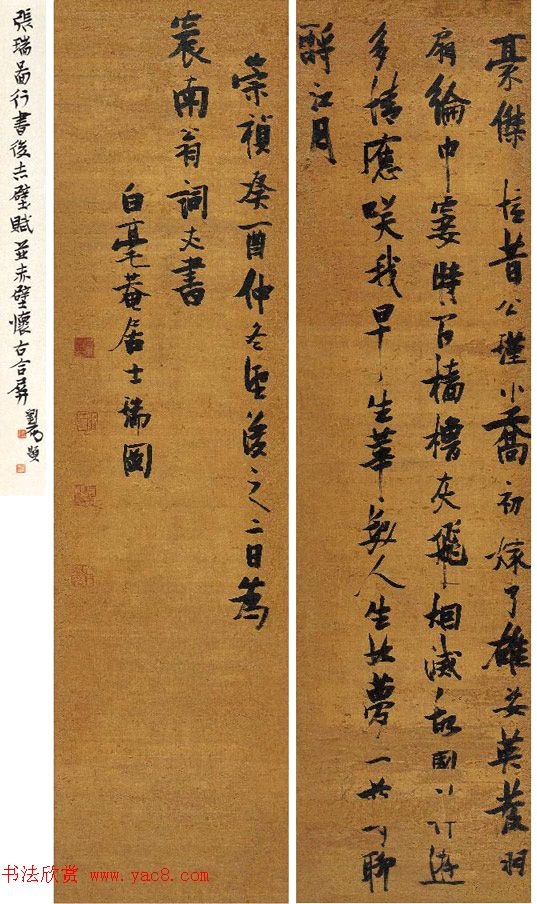 豪傑 昔公瑾小喬初嫁了雄姿英發羽
扇綸巾霎時間檣櫓灰飛烟滅故國神遊
多情應咲我早生華髮人生如夢一尊聊
酹江月
崇禎癸酉仲冬望後之二日為
南翁詞丈書
白毫菴居士瑞圖
張瑞圖行書後赤壁賦並赤壁懷古合屏
劉 題
书法欣赏 www.yac8.com